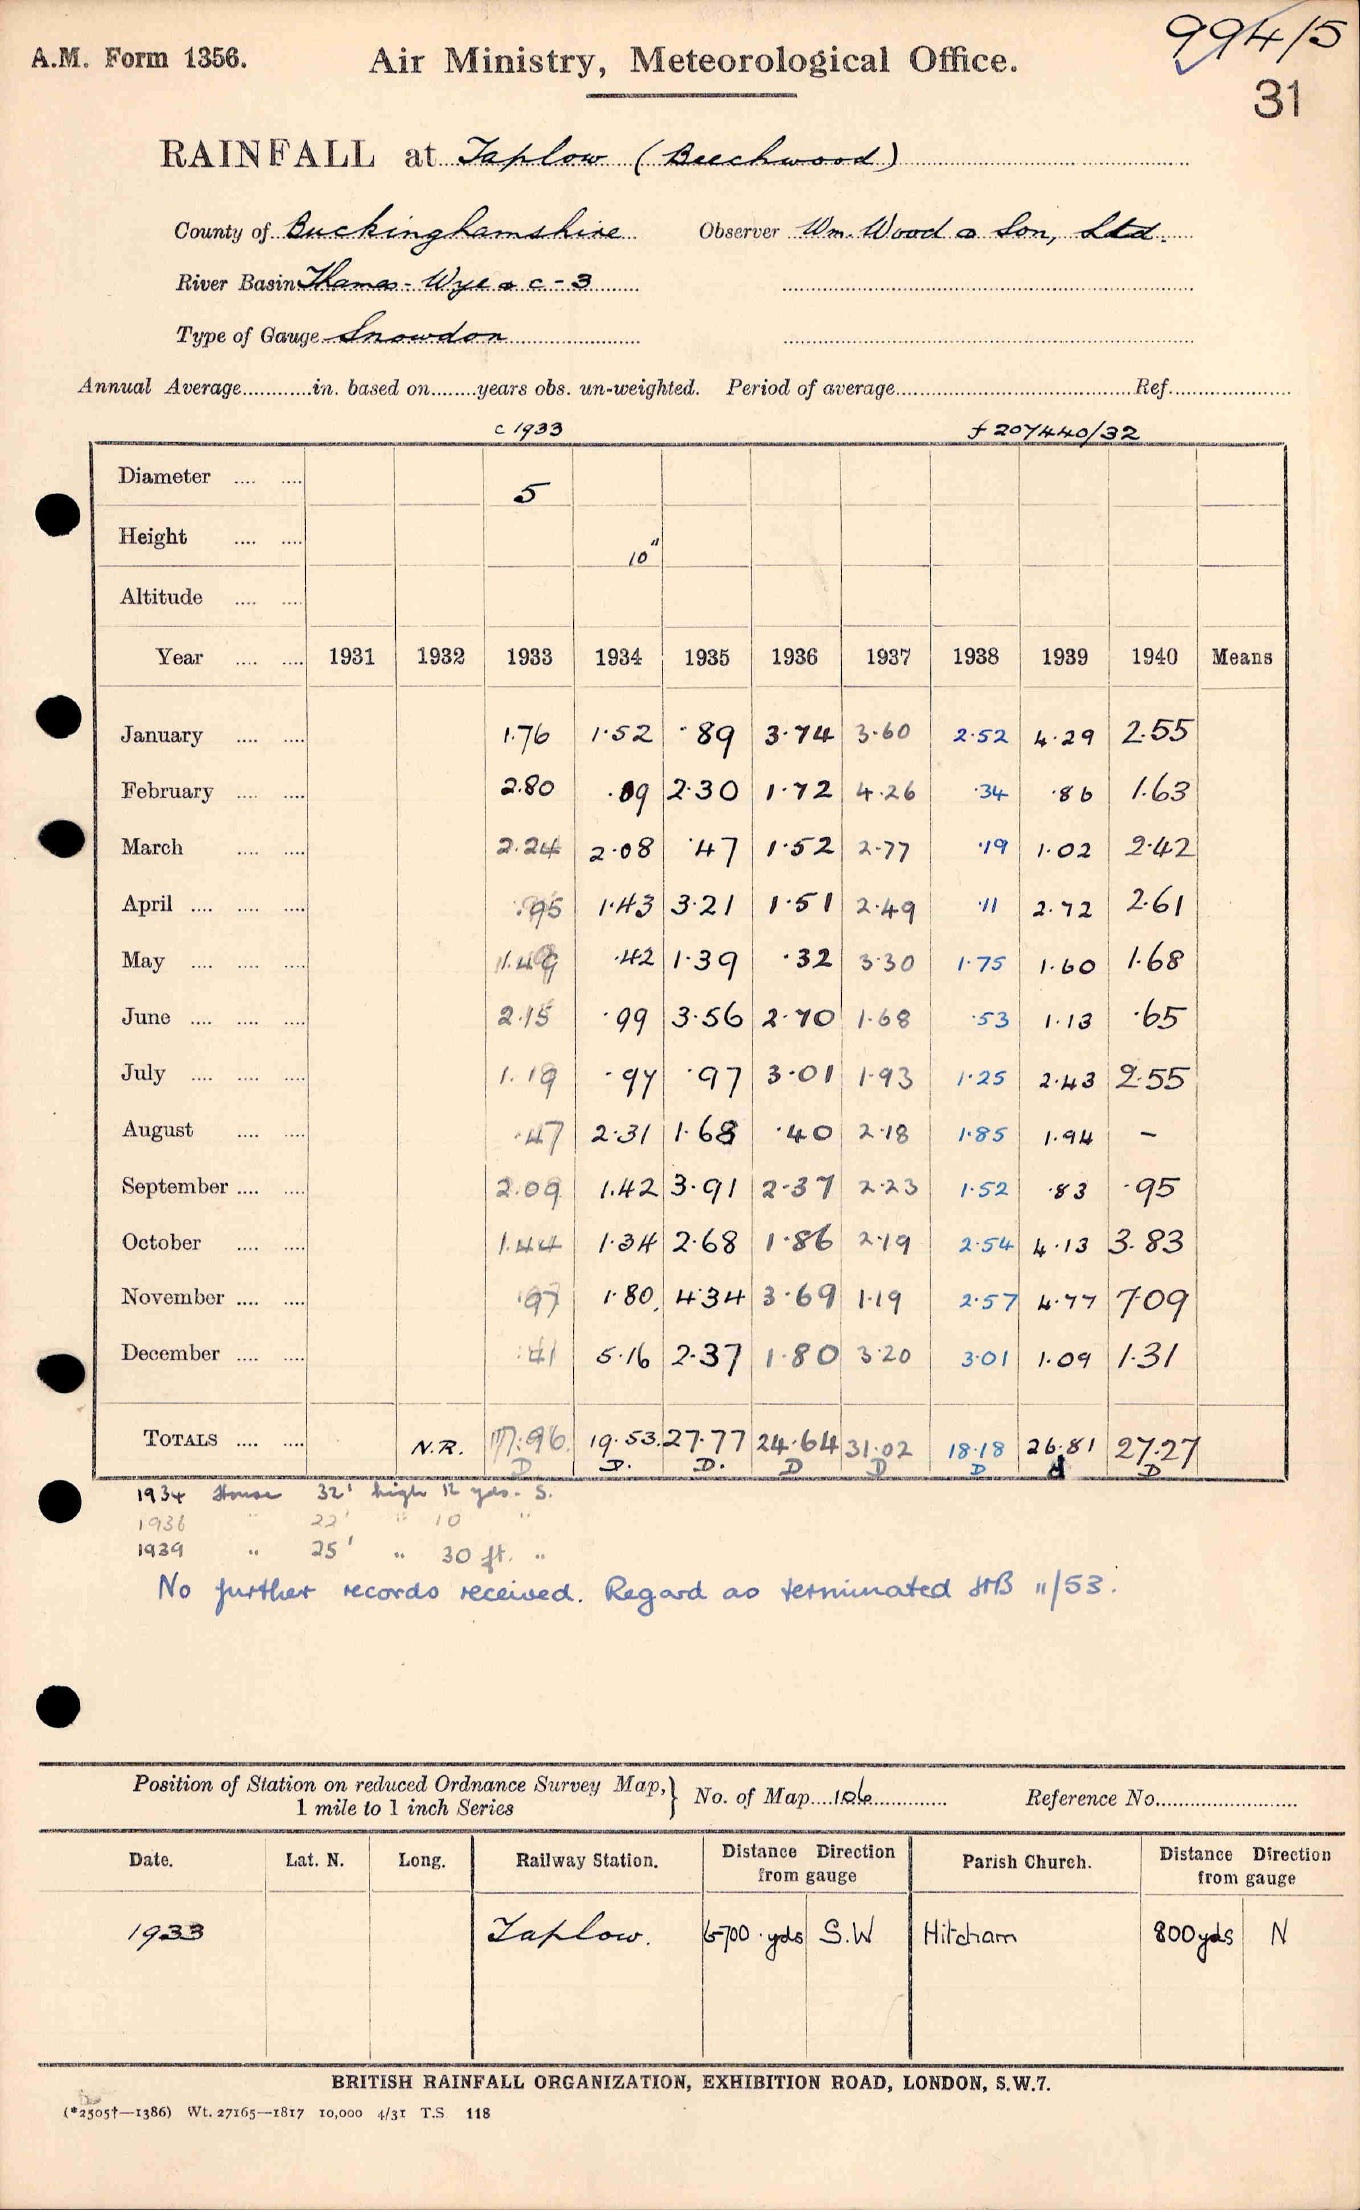 994/5
A.M. Form 1356. Air Ministry, Meteorological Office.
31
RAINFALL at Taplow (Beechwood)
County of Buckinghamshire Observer Wm. Wood & Son, Ltd.
River Basin Thames - Wye & c - 3
Type of Gauge Snowdon
Annual Average............in. based on........years obs. un-weighted. Period of average........................................Ref......................
c 1933 f 207440/32
Diameter .... .... 5
Height .... .... 10"
Altitude .... ....
Year .... .... 1931 1932 1933 1934 1935 1936 1937 1938 1939 1940 Means
January .... .... 1.76 1.52 .89 3.74 3.60 2.52 4.29 2.55
February .... .... 2.80 .09 2.30 1.72 4.26 .34 .86 1.63
March .... .... 2.24 2.08 .47 1.52 2.77 .19 1.02 2.42
April .... .... .... .95 1.43 3.21 1.51 2.49 .11 2.72 2.61
May .... .... .... 1.49 .42 1.39 .32 3.30 1.75 1.60 1.68
June .... .... .... 2.15 .99 3.56 2.70 1.68 .53 1.13 .65
July .... .... .... 1.19 .97 .97 3.01 1.93 1.25 2.43 2.55
August .... .... .47 2.31 1.68 .40 2.18 1.85 1.94 -
September .... .... 2.09 1.42 3.91 2.37 2.23 1.52 .83 .95
October .... .... 1.44 1.34 2.68 1.86 2.19 2.54 4.13 3.83
November .... .... .97 1.80 4.34 3.69 1.19 2.57 4.77 7.09
December .... .... .41 5.16 2.37 1.80 3.20 3.01 1.09 1.31
TOTALS .... .... N.R. 17.96 19.53 27.77 24.64 31.02 18.18 26.81 27.27
D D. D. D D D d D
1934 House 32' high 12 yds. S.
1936 " 22' " 10 "
1939 " 25' " 30 ft. "
No further records received. Regard as terminated HB 11/53.
Position of Station on reduced Ordnance Survey Map, 1 mile to 1 inch Series } No. of Map....106............. Reference No.........................
Date. Lat. N. Long. Railway Station. Distance Direction from gauge Parish Church. Distance Direction from gauge
1933 Taplow. 6-700 yds S.W Hitcham 800yds N
BRITISH RAINFALL ORGANIZATION, EXHIBITION ROAD, LONDON, S.W.7.
(*2505†—1386) Wt. 27165—1817 10,000 4/31 T.S 118